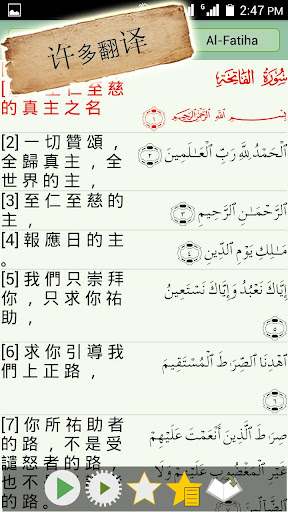 2:47 PM
许多翻译
Al-Fatiha
至仁至慈
的真主之名
سُورَةُ الفَاتِحَة
بِسْمِ ٱللَّهِ ٱلرَّحْمَٰنِ ٱلرَّحِيمِ ١
[2] 一切贊頌，
全歸真主，全
世界的主，
ٱلْحَمْدُ لِلَّهِ رَبِّ ٱلْعَٰلَمِينَ
٢
[3] 至仁至慈的
主，
ٱلرَّحْمَٰنِ ٱلرَّحِيمِ
٣
[4] 報應日的主
。
مَٰلِكِ يَوْمِ ٱلدِّينِ
٤
[5] 我們只崇拜
你，只求你祐
助，
إِيَّاكَ نَعْبُدُ وَإِيَّاكَ نَسْتَعِينُ
٥
[6] 求你引導我
們上正路，
ٱهْدِنَا ٱلصِّرَٰطَ ٱلْمُسْتَقِيمَ
٦
[7] 你所祐助者
的路，不是受
譴怒者的路，
也不
صِرَٰطَ ٱلَّذِينَ أَنْعَمْتَ عَلَيْهِمْ
غَيْرِ ٱلْمَغْضُوبِ عَلَيْهِمْ وَلَا